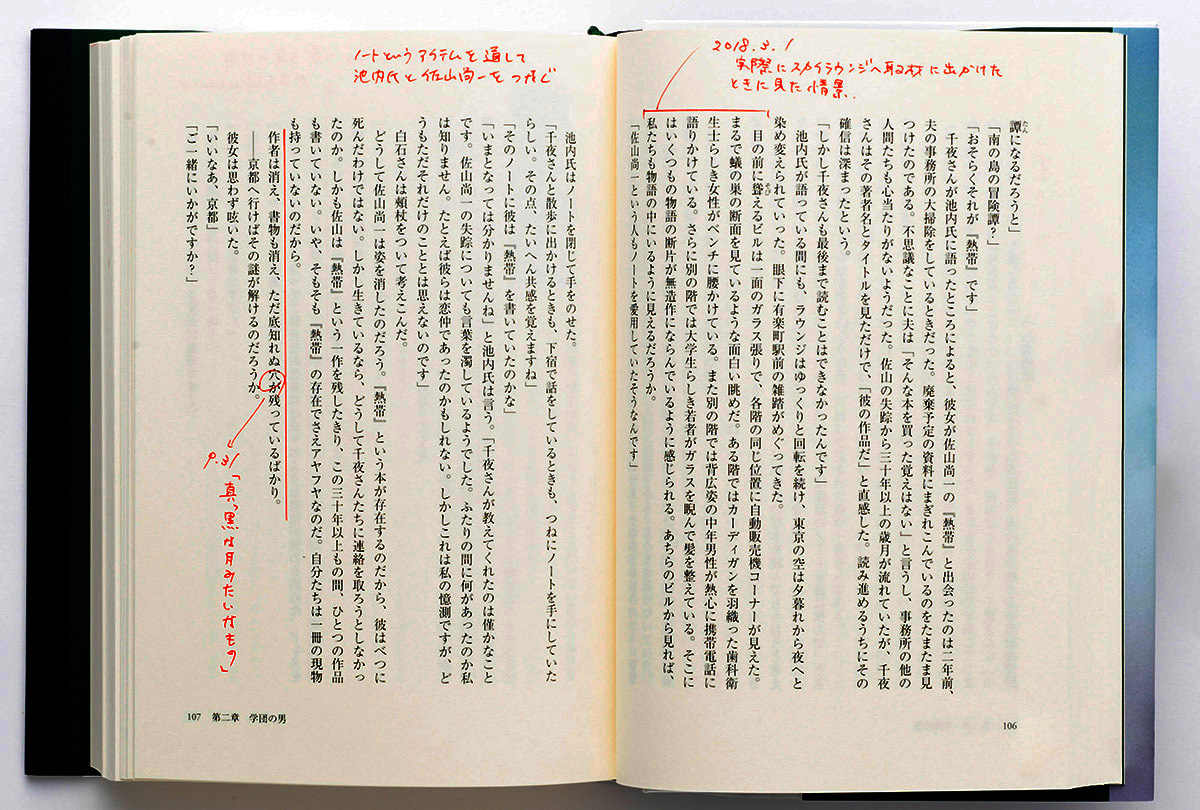 2018.3.1
実際にスカイラウンジへ取材に出かけた
ときに見た情景.
譚になるだろうと」
「南の島の冒険譚？」
「おそらくそれが『熱帯』です」
千夜さんが池内氏に語ったところによると、彼女が佐山尚一の『熱帯』と出会ったのは二年前、
夫の事務所の大掃除をしているときだった。廃棄予定の資料にまぎれこんでいるのをたまたま見
つけたのである。不思議なことに夫は「そんな本を買った覚えはない」と言うし、事務所の他の
人間たちも心当たりがないようだった。佐山の失踪から三十年以上の歳月が流れていたが、千夜
さんはその著者名とタイトルを見ただけで、「彼の作品だ」と直感した。読み進めるうちにその
確信は深まったという。
「しかし千夜さんも最後まで読むことはできなかったんです」
池内氏が語っている間にも、ラウンジはゆっくりと回転を続け、東京の空は夕暮れから夜へと
染め変えられていった。眼下に有楽町駅前の雑踏がめぐってきた。
目の前に聳えるビルは一面のガラス張りで、各階の同じ位置に自動販売機コーナーが見えた。
まるで蟻の巣の断面を見ているような面白い眺めだ。ある階ではカーディガンを羽織った歯科衛
生士らしき女性がベンチに腰かけている。また別の階では背広姿の中年男性が熱心に携帯電話に
語りかけている。さらに別の階では大学生らしき若者がガラスを睨んで髪を整えている。そこに
はいくつもの物語の断片が無造作にならんでいるように感じられる。あちらのビルから見れば、
私たちも物語の中にいるように見えるだろうか。
「佐山尚一という人もノートを愛用していたそうなんです」
106
ノートというアイテムを通して
池内氏と佐山尚一をつなぐ
池内氏はノートを閉じて手をのせた。
「千夜さんと散歩に出かけるときも、下宿で話をしているときも、つねにノートを手にしていた
らしい。その点、たいへん共感を覚えますね」
「そのノートに彼は『熱帯』を書いていたのかな」
「いまとなっては分かりませんね」と池内氏は言う。「千夜さんが教えてくれたのは僅かなこと
です。佐山尚一の失踪についても言葉を濁しているようでした。ふたりの間に何があったのか私
は知りません。たとえば彼らは恋仲であったのかもしれない。しかしこれは私の憶測ですが、ど
うもただそれだけのこととは思えないのです」
白石さんは頬杖をついて考えこんだ。
どうして佐山尚一は姿を消したのだろう。『熱帯』という本が存在するのだから、彼はべつに
死んだわけではない。しかし生きているなら、どうして千夜さんたちに連絡を取ろうとしなかっ
たのか。しかも佐山は『熱帯』という一作を残したきり、この三十年以上もの間、ひとつの作品
も書いていない。いや、そもそも『熱帯』の存在でさえアヤフヤなのだ。自分たちは一冊の現物
も持っていないのだから。
作者は消え、書物も消え、ただ底知れぬ穴が残っているばかり。
――京都へ行けばその謎が解けるのだろうか。
彼女は思わず呟いた。
「いいなあ、京都」
「ご一緒にいかがですか？」
「真っ黒な月みたいなもの」
107 第二章 学団の男